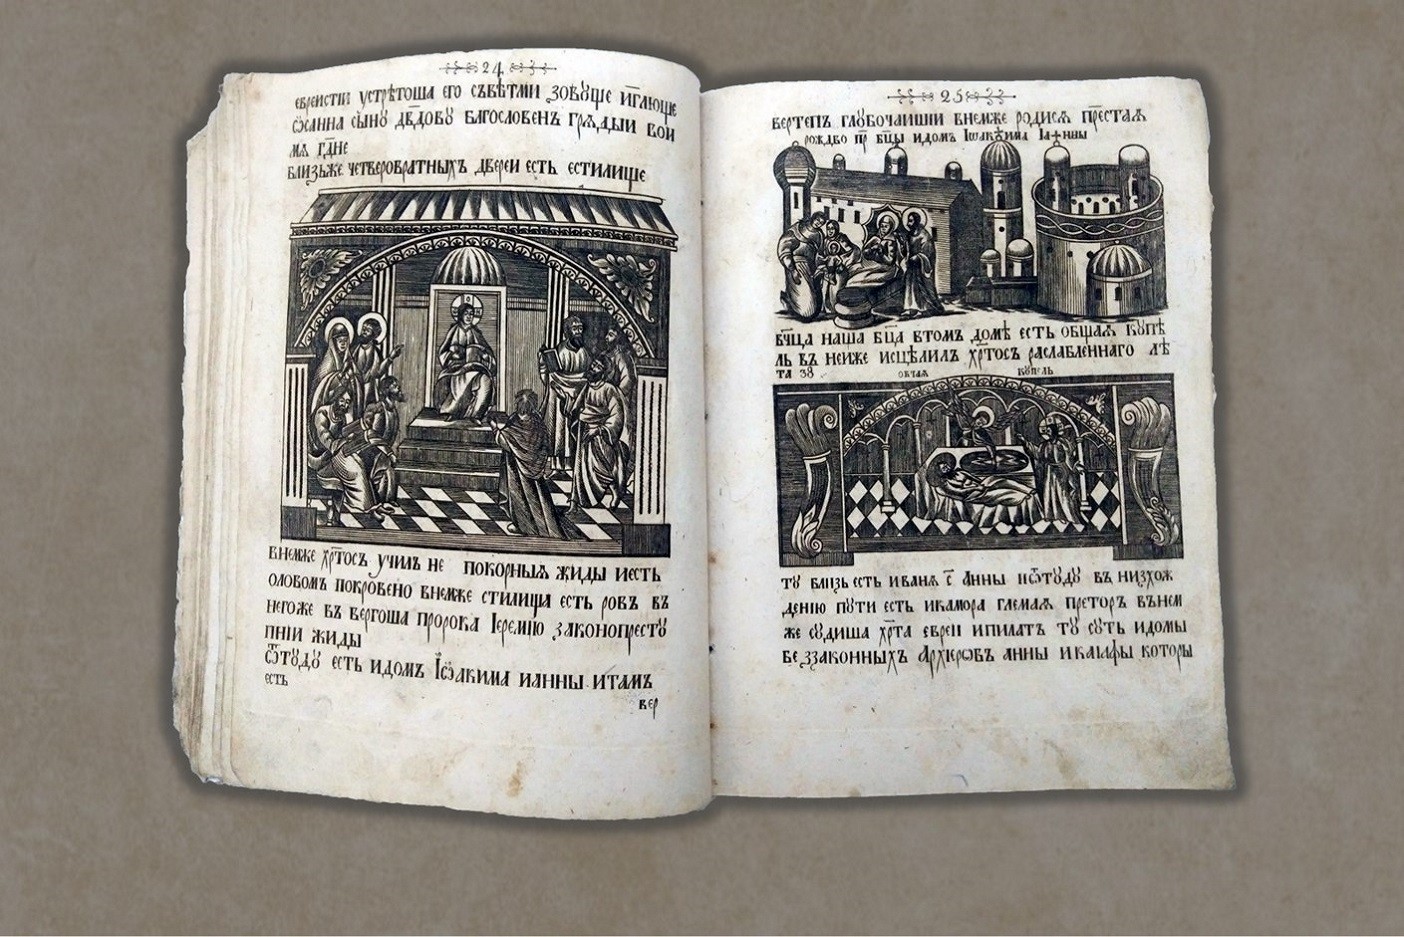 24
евреистіи устрѣтоша его съвѣтми зовуще и҃глюще
ѡсанна сыну дв҃дову благословенъ грядыи вои
мя гд҃не
близьже четверовратныхъ двереи есть естилище
внемже хр҃тосъ училъ не покорныя жиды иесть
оловомъ покровено внемже стилища есть ровъ въ
негоже въ вергоша пророка Іеремію законопресту
пніи жиды
ѿтуду есть идомъ Іѡакима ианны итамъ
есть
вер
25
вертепъ глубочаишии внемже родися пр҃естая
рождво пр҃ бц҃ы идомъ Іѡакима Іанны
бц҃ца наша бц҃а втомъ домѣ есть общая купѣ
ль въ неиже исцѣлилъ хр҃тосъ раслабленнаго лѣ
та 38
общая купѣль
ту близь есть иваня с҃ Анны иѿтуду въ низхож
дению пути есть икамора глемая преторъ вънем
же судиша хр҃та евреи ипилатъ ту суть идомы
беззаконныхъ Архіеровъ анны икаіафы которы